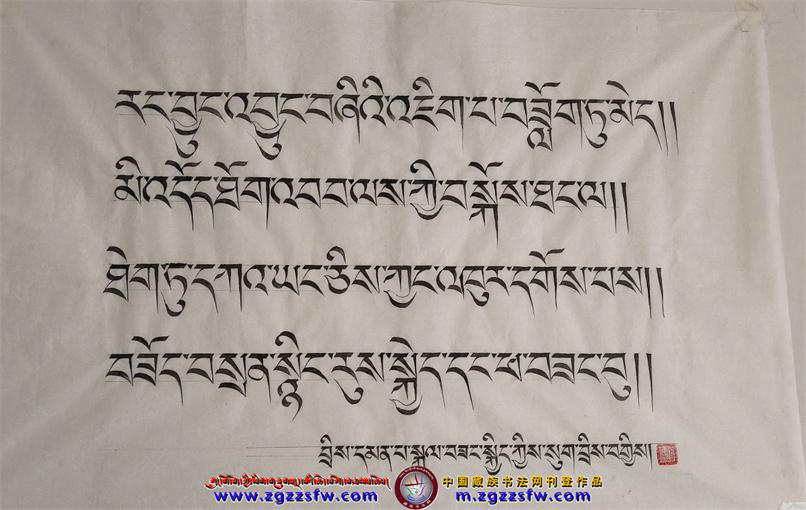 རང་བྱུང་འབྱུང་བཞིའི་འཇིག་པ་བཟློག་ཏུ་མེད།།
མི་འདོད་ཐོག་འབབ་ལས་ཀྱི་བསྐོས་ཐང་ལ།།
ཐེག་ཏུ་དཀའ་ཡང་ཅིས་ཀྱང་འཁུར་དགོས་པས།།
བཟོད་བསྲན་སྙིང་རུས་སྐྱེད་དང་ཕ་བཟང་བུ།།
བྲིས་དམན་པ་སྐལ་བཟང་སྐྱིད་ཀྱིས་སུག་བྲིས་བགྱིས།
中国藏族书法网刊登作品
www.zgzzsfw.com
m.zgzzsfw.com